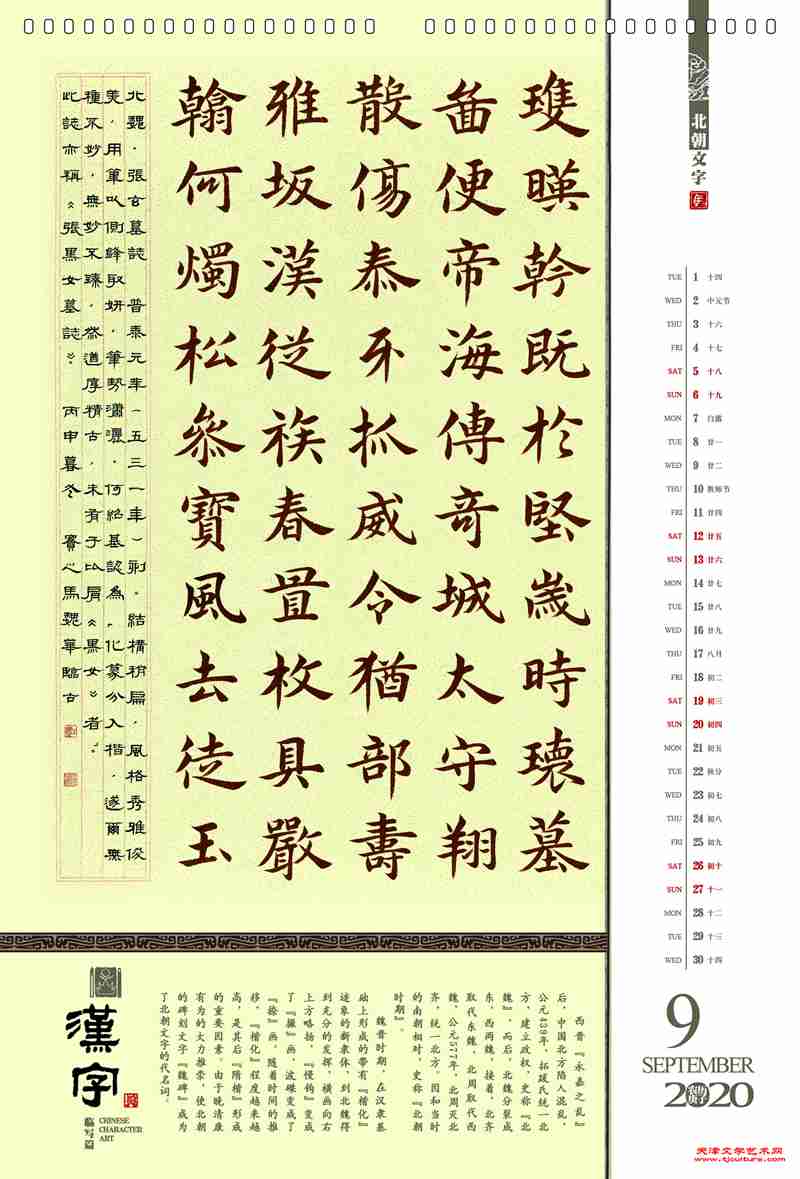 暎幹既於堅歲時瓌墓
便帝海傳奇城太守翔
散傷泰牙抓威令猶部壽
雅坂漢從族春置枚具嚴
翰何燭松叅寶風去徒玉
北魏．張玄墓誌 普泰元年（五三一年）刻。結構稍扁，風格秀雅俊
美，用筆以側鋒取妍，筆勢瀟灑。何紹基認為「化篆分入楷，遂爾無
種不妙，無妙不臻，然道厚精古，未有于比肩《黑女》者。」
此誌亦稱《張黑女墓誌》。 丙申暮冬 馬魏華臨古
北朝文字
TUE 1 十四
WED 2 中元节
THU 3 十六
FRI 4 十七
SAT 5 十八
SUN 6 十九
MON 7 白露
TUE 8 廿一
WED 9 廿二
THU 10 教师节
FRI 11 廿四
SAT 12 廿五
SUN 13 廿六
MON 14 廿七
TUE 15 廿八
WED 16 廿九
THU 17 八月
FRI 18 初二
SAT 19 初三
SUN 20 初四
MON 21 初五
TUE 22 秋分
WED 23 初七
THU 24 初八
FRI 25 初九
SAT 26 初十
SUN 27 十一
MON 28 十二
TUE 29 十三
WED 30 十四
9
SEPTEMBER
2020
西晋『永嘉之乱』
后，中国北方陷入混乱，
公元439年，拓跋氏统一北
方，建立政权，史称『北
魏』，而后，北魏分裂成
东，西两魏，接着，北齐
取代东魏，北周取代西
魏。公元577年，北周灭北
齐，统一北方。因和当时
的南朝相对，史称『北朝
时期』。
魏晋时期，在汉隶基
础上形成的带有『楷化』
迹象的新隶体，到北魏得
到充分的发挥，横画向右
上方略扬，『慢钩』变成
了『趯』画，波磔变成了
『捺』画，随着时间的推
移，『楷化』程度越来越
高，是其后『隋楷』形成
的重要因素。由于晚清康
有为的大力推崇，使北朝
的碑刻文字『魏碑』成为
了北朝文字的代名词。
漢字
临写篇
CHINESE
CHARACTER
ART
天津文学艺术网
www.tjculture.com